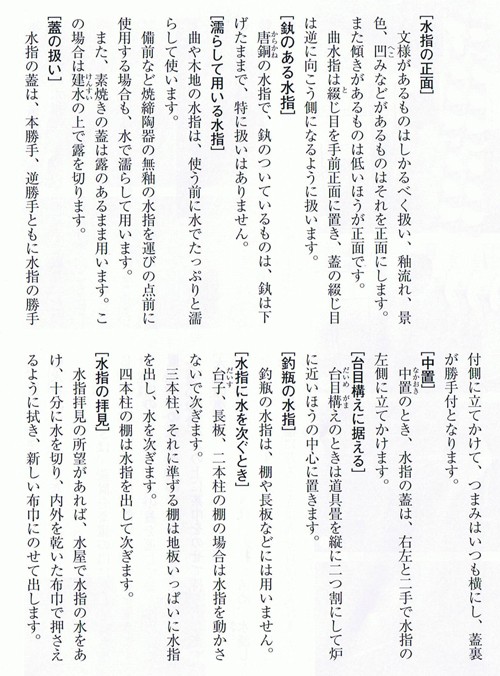 [水指の正面]
文様があるものはしかるべく扱い、釉流れ、景
色、凹みなどがあるものはそれを正面にします。
また傾きがあるものは低いほうが正面です。
曲水指は綴じ目を手前正面に置き、蓋の綴じ目
は逆に向こう側になるように扱います。
[鈌のある水指]
唐銅の水指で、鈌のついているものは、鈌は下
げたままで、特に扱いはありません。
[濡らして用いる水指]
曲や木地の水指は、使う前に水でたっぷりと濡
らして使います。
備前など焼締陶器の無釉の水指を運びの点前に
使用する場合も、水で濡らして用います。
また、素焼きの蓋は露のあるまま用います。こ
の場合は建水の上で露を切ります。
[蓋の扱い]
水指の蓋は、本勝手、逆勝手ともに水指の勝手
付側に立てかけて、つまみはいつも横にし、蓋裏
が勝手付となります。
[中置]
中置のとき、水指の蓋は、右左と二手で水指の
左側に立てかけます。
[台目構えに据える]
台目構えのときは道具畳を縦に二つ割にして炉
に近いほうの中心に置きます。
[釣瓶の水指]
釣瓶の水指は、棚や長板などには用いません。
[水指に水を次ぐとき]
台子、長板、二本柱の棚の場合は水指を動かさ
ないで次ぎます。
三本柱、それに準ずる棚は地板いっぱいに水指
を出し、水を次ぎます。
四本柱の棚は水指を出して次ぎます。
[水指の拝見]
水指拝見の所望があれば、水屋で水指の水をあ
け、十分に水を切り、内外を乾いた布巾で押さえ
るように拭き、新しい布巾にのせて出します。